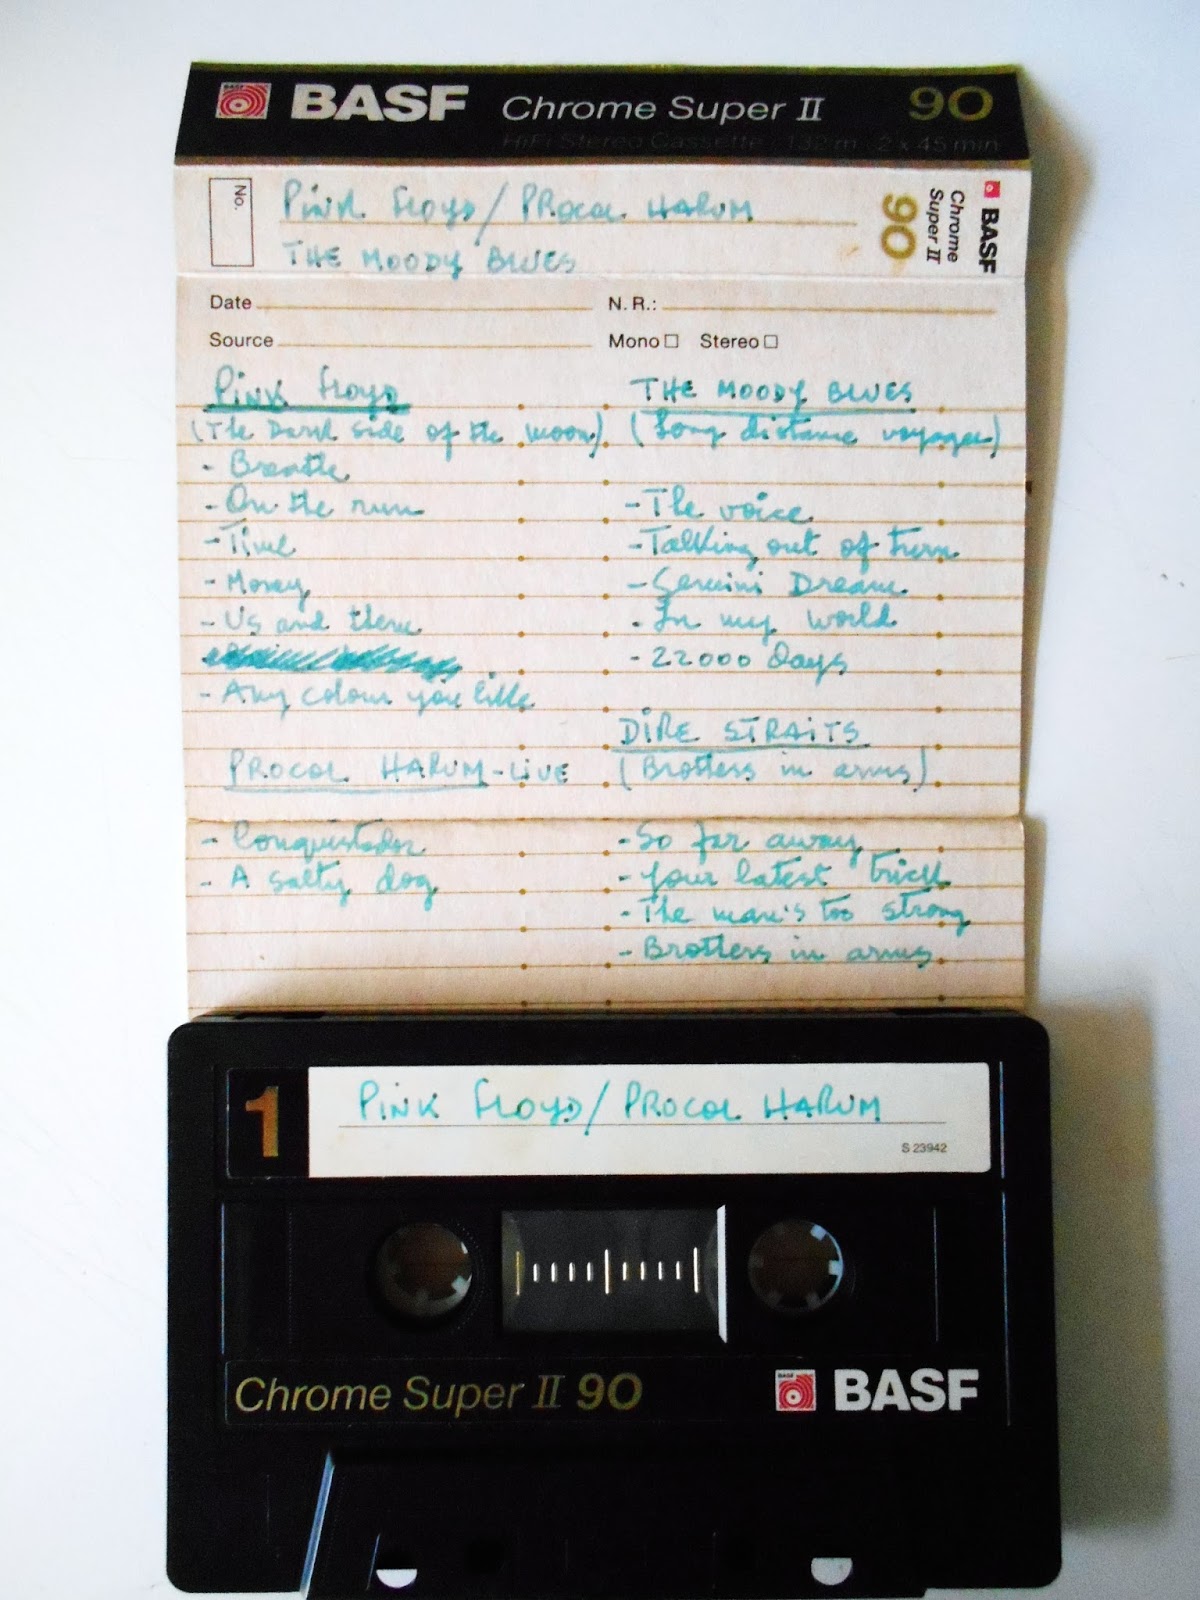 BASF Chrome Super II 90
HiFi Stereo Cassette 132 m 2 x 45 min
No.
Pink Floyd / PROCOL HARUM
THE MOODY BLUES
BASF
Chrome
Super II
90
Date N. R.:
Source Mono Stereo
Pink Floyd
(The Dark side of the moon)
- Breathe
- On the run
- Time
- Money
- Us and them
- Any colour you like
PROCOL HARUM - LIVE
- Conquistador
- A salty dog
THE MOODY BLUES
(Long distance voyager)
- The voice
- Talking out of turn
- Gemini Dream
- In my world
- 22000 days
DIRE STRAITS
(Brothers in arms)
- So far away
- Your latest trick
- The man's too strong
- Brothers in arms
1
PINK FLOYD / PROCOL HARUM
S 23942
Chrome Super II 90
BASF